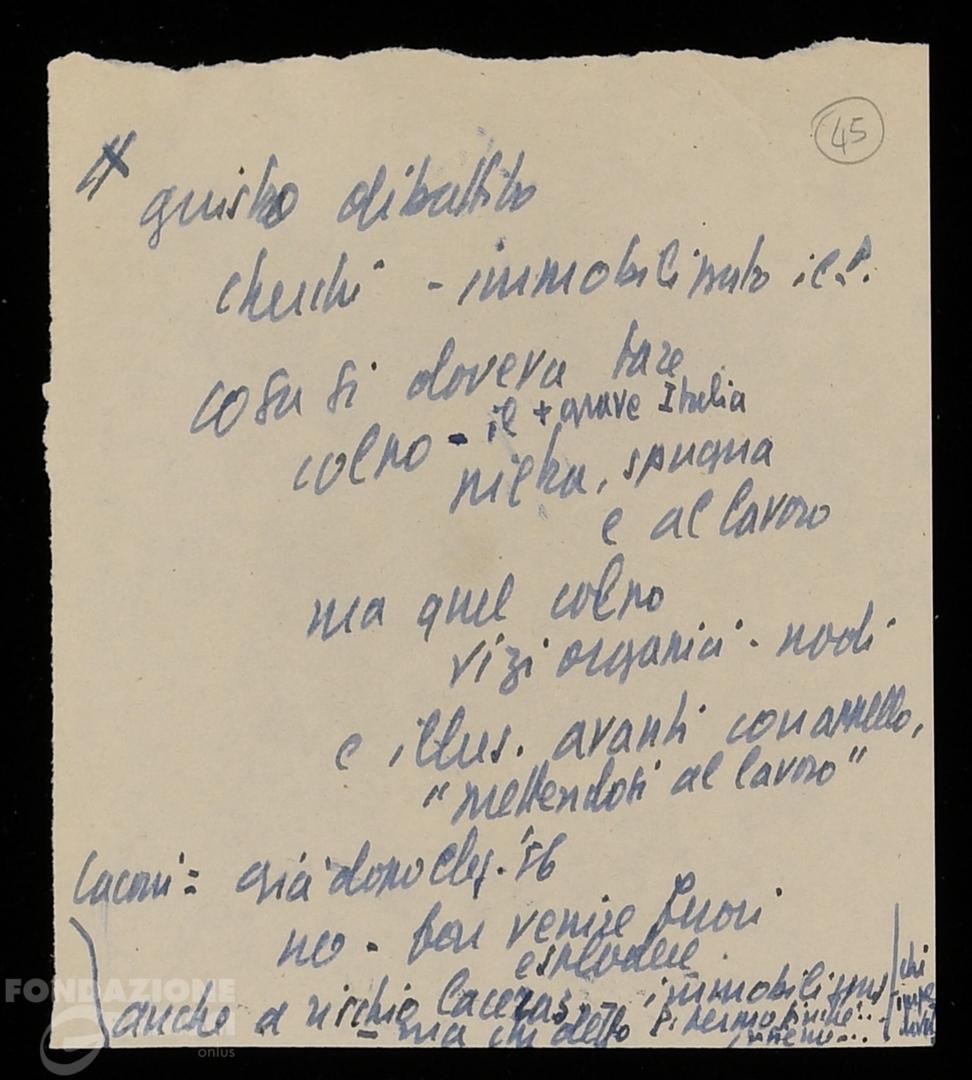 45
giusto dibattito
cherchi - immobilizzato il P.
cosa si doveva fare
colpo - il + grave Italia
pietra, spugna
e al lavoro
ma quel colpo
vizi organici - nodi
e illus. avanti con
"mettendosi al lavoro"
Laconi = già dopo elez. '56
no - far venire fuori
esplodere
anche a rischio laceraz. - immobilismo
ma chi detto
chi
FONDAZIONE
onlus